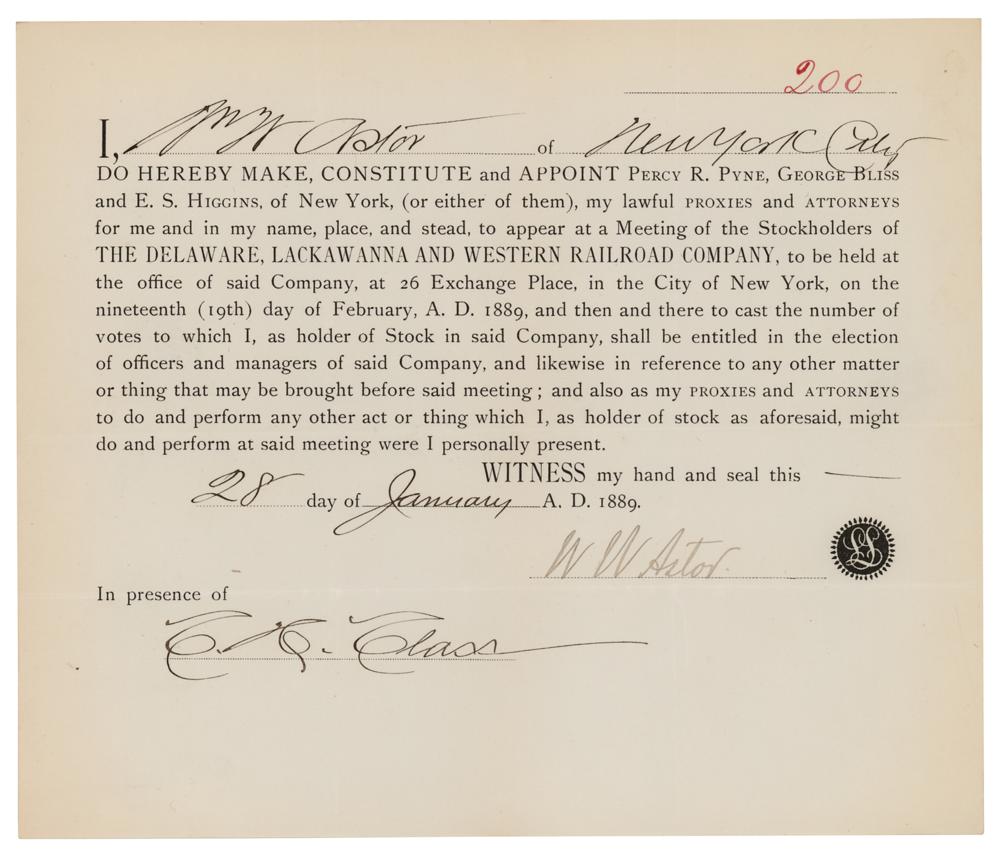 200
I, Wm W Astor of New York City
DO HEREBY MAKE, CONSTITUTE and APPOINT PERCY R. PYNE, GEORGE BLISS
and E. S. HIGGINS, of New York, (or either of them), my lawful PROXIES and ATTORNEYS
for me and in my name, place, and stead, to appear at a Meeting of the Stockholders of
THE DELAWARE, LACKAWANNA AND WESTERN RAILROAD COMPANY, to be held at
the office of said Company, at 26 Exchange Place, in the City of New York, on the
nineteenth (19th) day of February, A. D. 1889, and then and there to cast the number of
votes to which I, as holder of Stock in said Company, shall be entitled in the election
of officers and managers of said Company, and likewise in reference to any other matter
or thing that may be brought before said meeting; and also as my PROXIES and ATTORNEYS
to do and perform any other act or thing which I, as holder of stock as aforesaid, might
do and perform at said meeting were I personally present.
WITNESS my hand and seal this
28 day of January A. D. 1889.
W W Astor.
LS
In presence of